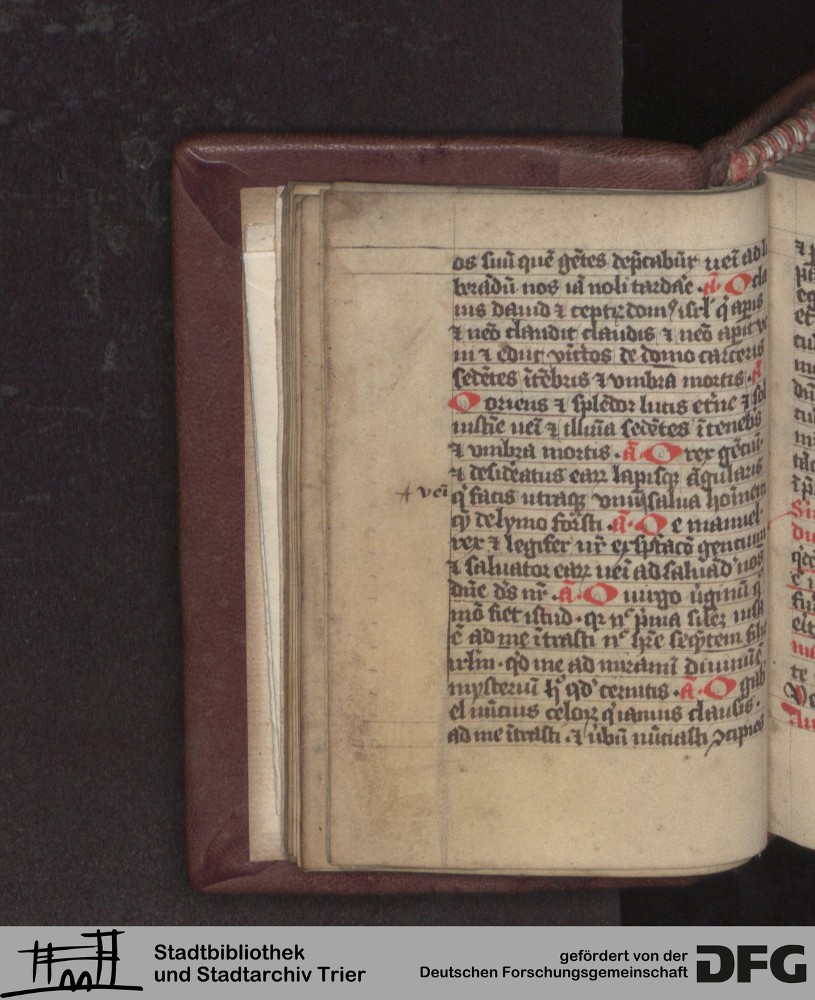 os suū quē gētes dep̄cabūr ueī ad li
brādū nos iā noli tardāe · a̅ · O cla
uis dauid ⁊ ceptr dom⁹ isrl̕ q̇ apis
⁊ neō claudit claudis ⁊ neō apit ve
ni ⁊ educ vīctos de domo carceris
sedētes ītēbris ⁊ vmbra mortis · a̅
O oriens ⁊ splēdor lucis et̄ne ⁊ sol
iustīe ueī ⁊ illuīa sedētes ītenebs
⁊ vmbra mortis · a̅ · O rex gētiū ·
⁊ desid̕eatus eaꝝ lapisqꝫ āgularis
A veī
q̇ facis utraqꝫ vnūsalua hoīnem
q̄ȝ delymo fōrsti · a̅ · O e manuel ·
rex ⁊ legifer nr̄ exsp̄tacō gentium
⁊ saluator eaꝝ ueī ad saluād̕ nos
dn̄e d̄s nr̄ · a̅ · O uirgo ūginū q̊
mō fiet istud · qr n̄c p̄ma silēz uisa
ē ad me ītrasti nc̄ hr̄e seq̄ntem filie
irlm̄ · q̇d me ad miramī diuinū ē
mysteriū h̊ qd̕ cernitis · a̅ · O gab
el nūcius celoꝝ q̇ ianuis clausis ·
ad me ītrasti · ⁊ ūbū nūciasti ɔcipies
Stadtbibliothek
und Stadtarchiv Trier
gefördert von der
Deutschen Forschungsgemeinschaft
DFG